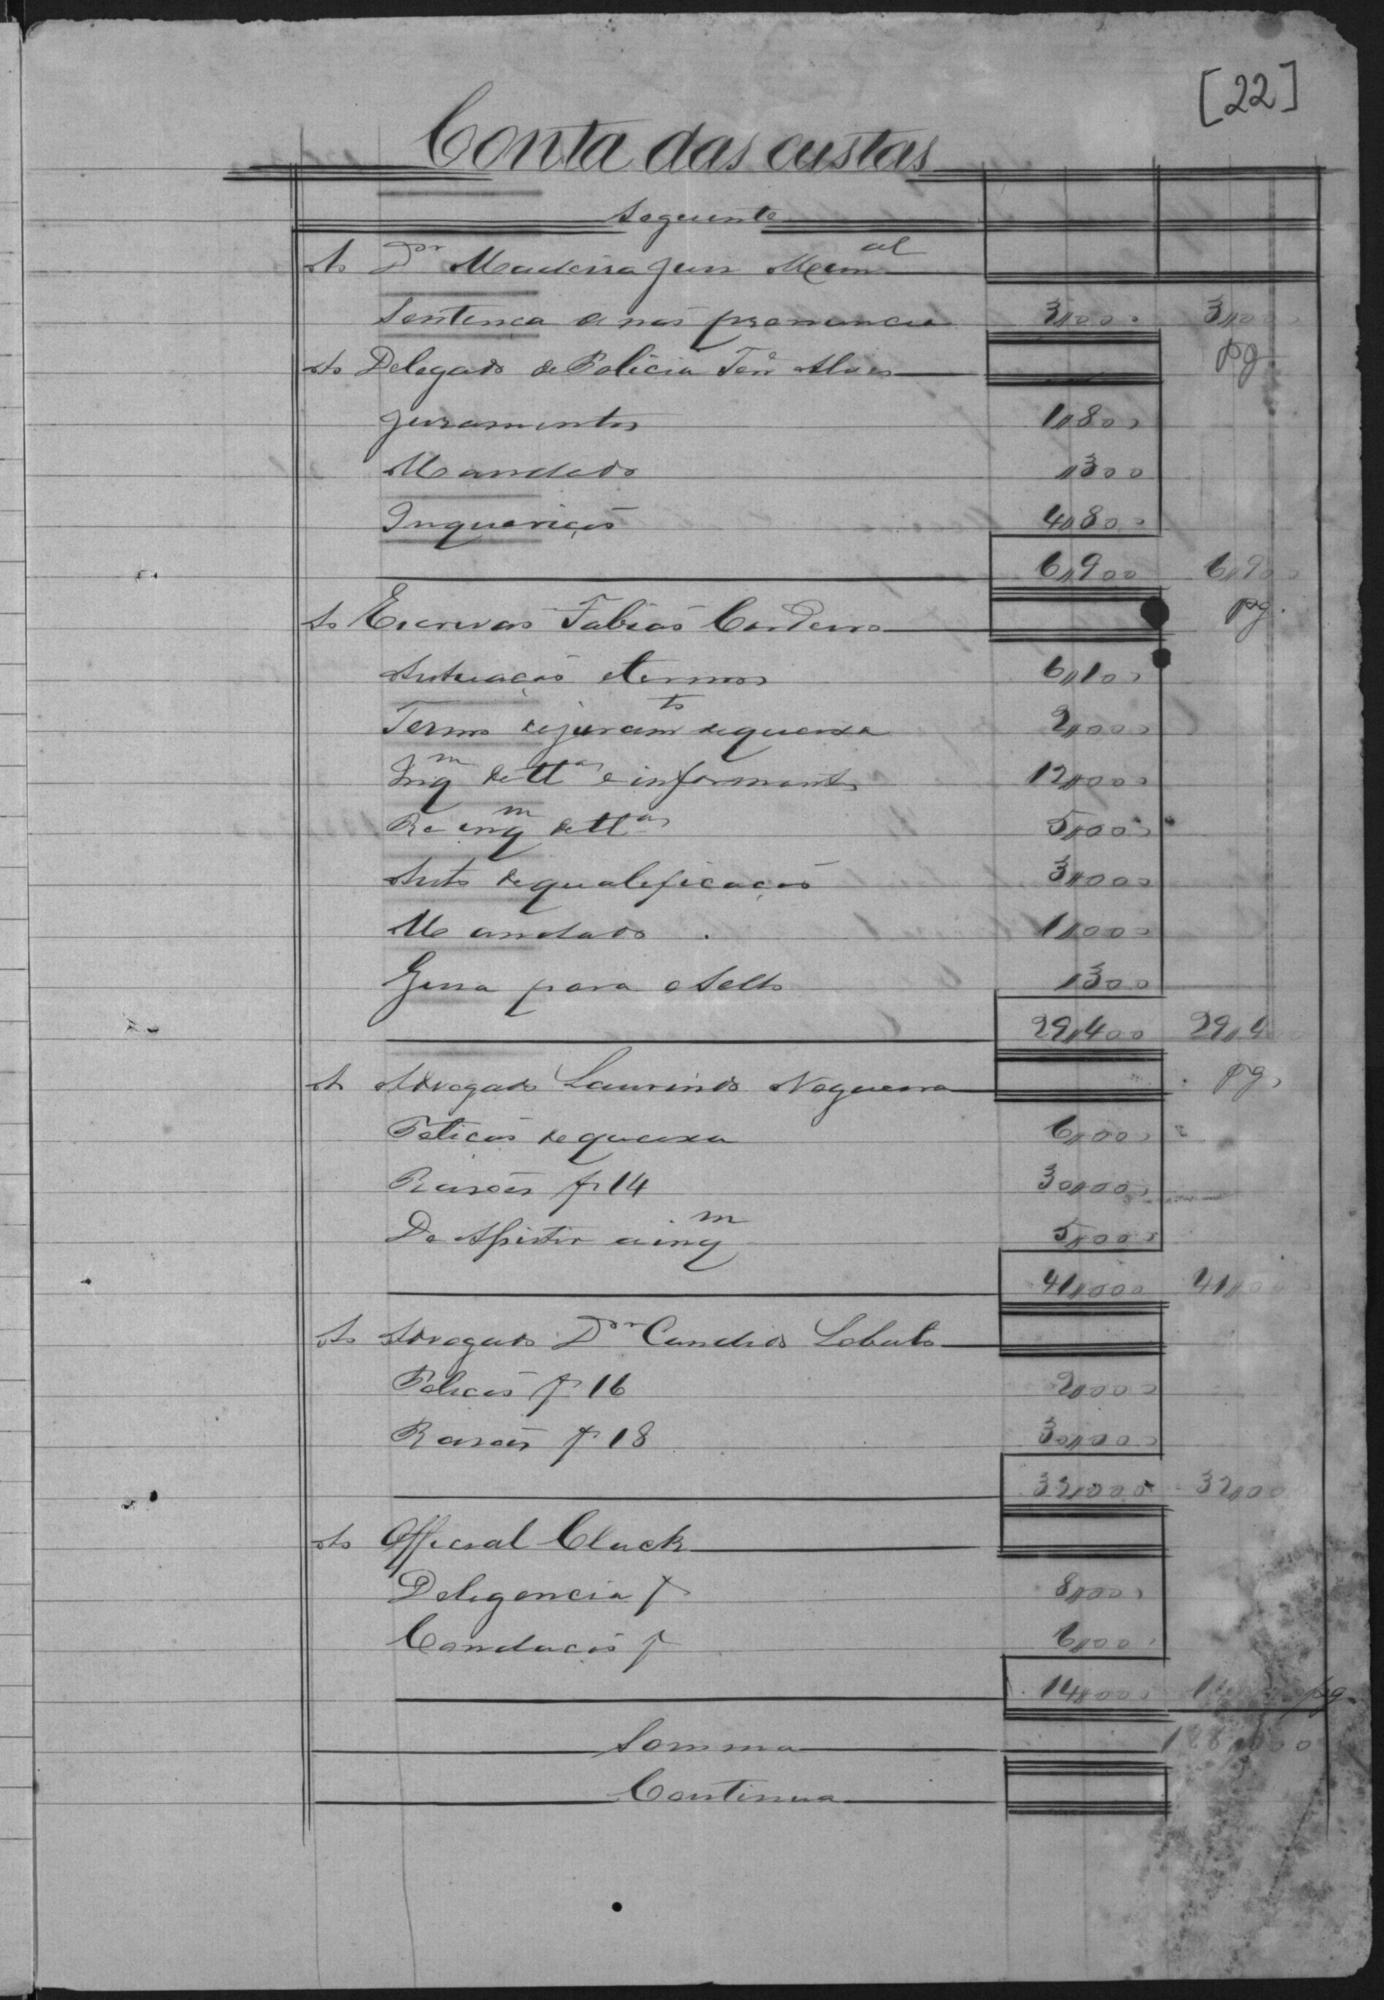 [22]
Conta das custas
Seguinte
Ao Dr Madeira Juis Mun al
Sentença de não pronuncia 3,,000 3,,000
Ao Delegado de Policia Tene Alves pg
Juramentos 1,,800
Mandado ,,300
Inquerição 4,,800
6,,900 6,,900
Ao Escrivão Fabião Cordeiro pg.
Autuação e termos 6,,100
Termo de juram to de queixa 2,,000
Inq m de tt as e informantes 12,,000
Re inq m de tt as 5,,000
Auto de qualificação 3,,000
Mandado 1,,000
Guia para o Sello ,,300
29,,400 29,,400
Ao Advogado Laurindo Nogueira pg
Petição de queixa 6,,000
Rasões f 14 30,,000
De Assistir a inq m 5,,000
41,,000 41,,000
Ao Advogado Dor Candido Lobato
Petição f 16 2,,000
Rasões f 18 30,,000
32,,000 32,,000
Ao Official Cluck
Deligencia f 8,,000
Conducão f 6,,000
14,,000 pg.
Somma
Continua